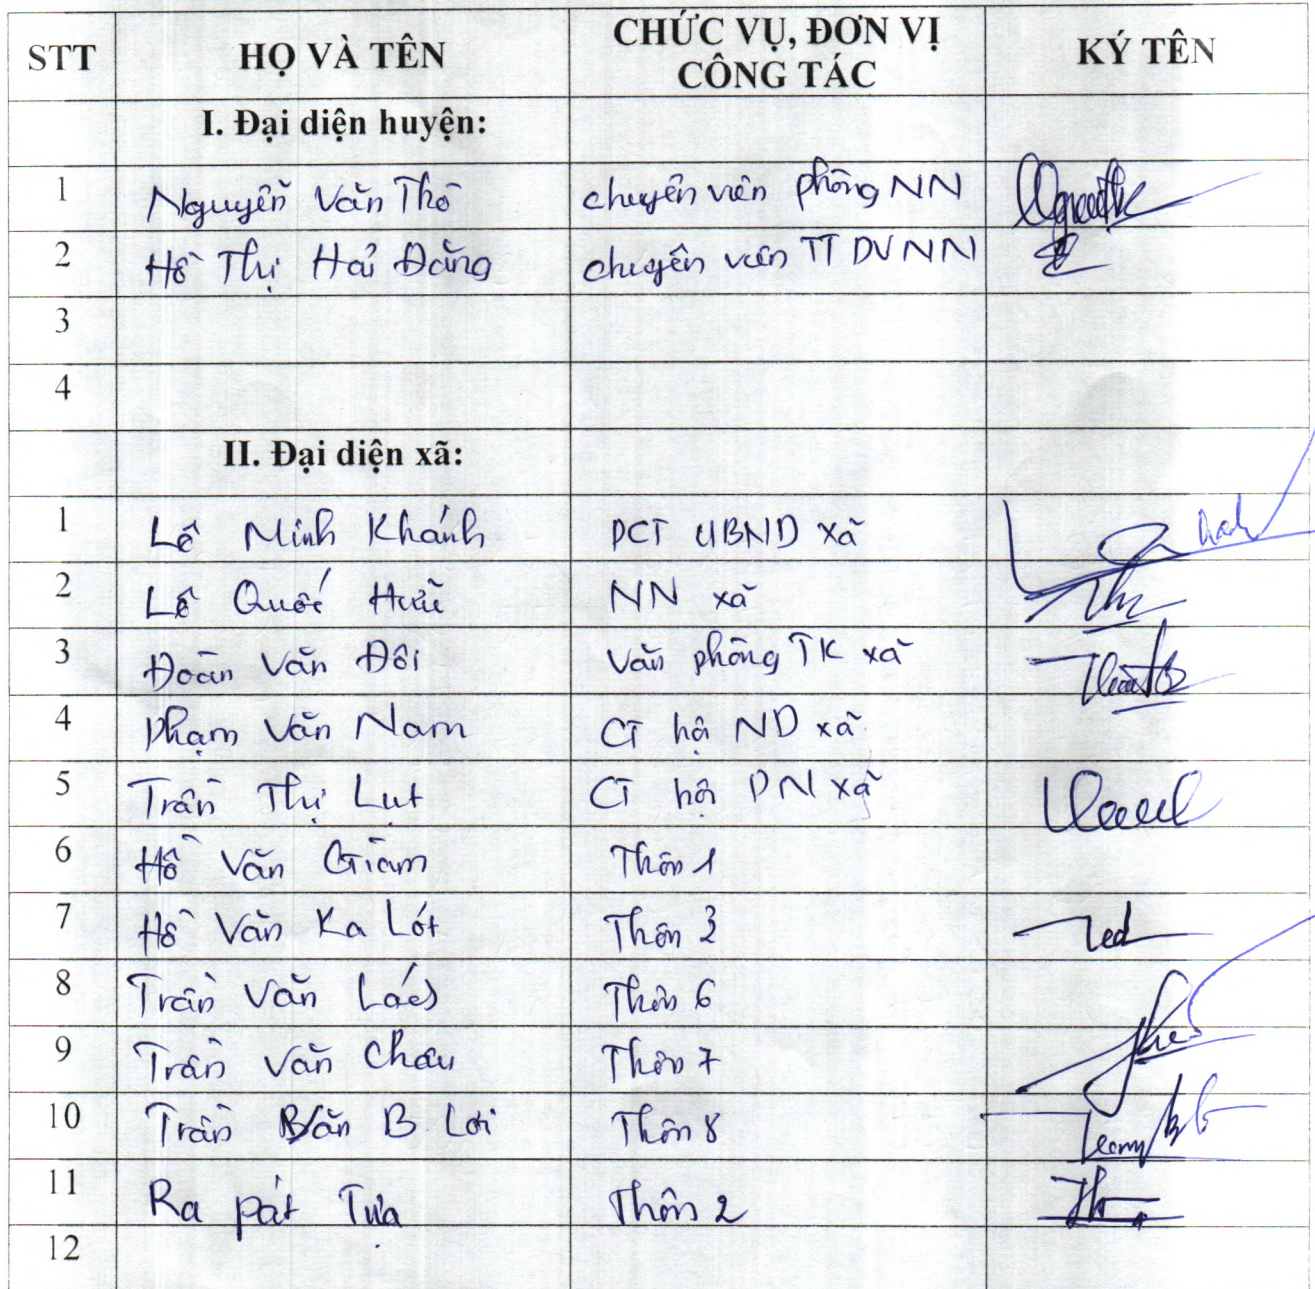 STT HỌ VÀ TÊN CHỨC VỤ, ĐƠN VỊ CÔNG TÁC KÝ TÊN
I. Đại diện huyện:
1 Nguyễn Văn Thố chuyên viên phòng NN
2 Hồ Thị Hải Đăng chuyên viên TT DVNN
3
4
II. Đại diện xã:
1 Lê Minh Khánh PCT UBND xã
2 Lê Quốc Hữu NN xã
3 Đoàn Văn Đôi Văn phòng TK xã
4 Phạm Văn Nam CT hội ND xã
5 Trần Thị Lụt CT hội PN xã
6 Hồ Văn Giàm Thôn 1
7 Hồ Văn Ka Lót Thôn 3
8 Trần Văn Thôn 6
9 Trần Văn Châu Thôn 7
10 Trần Văn B Lơi Thôn 8
11 Ra pát Tựa Thôn 2
12